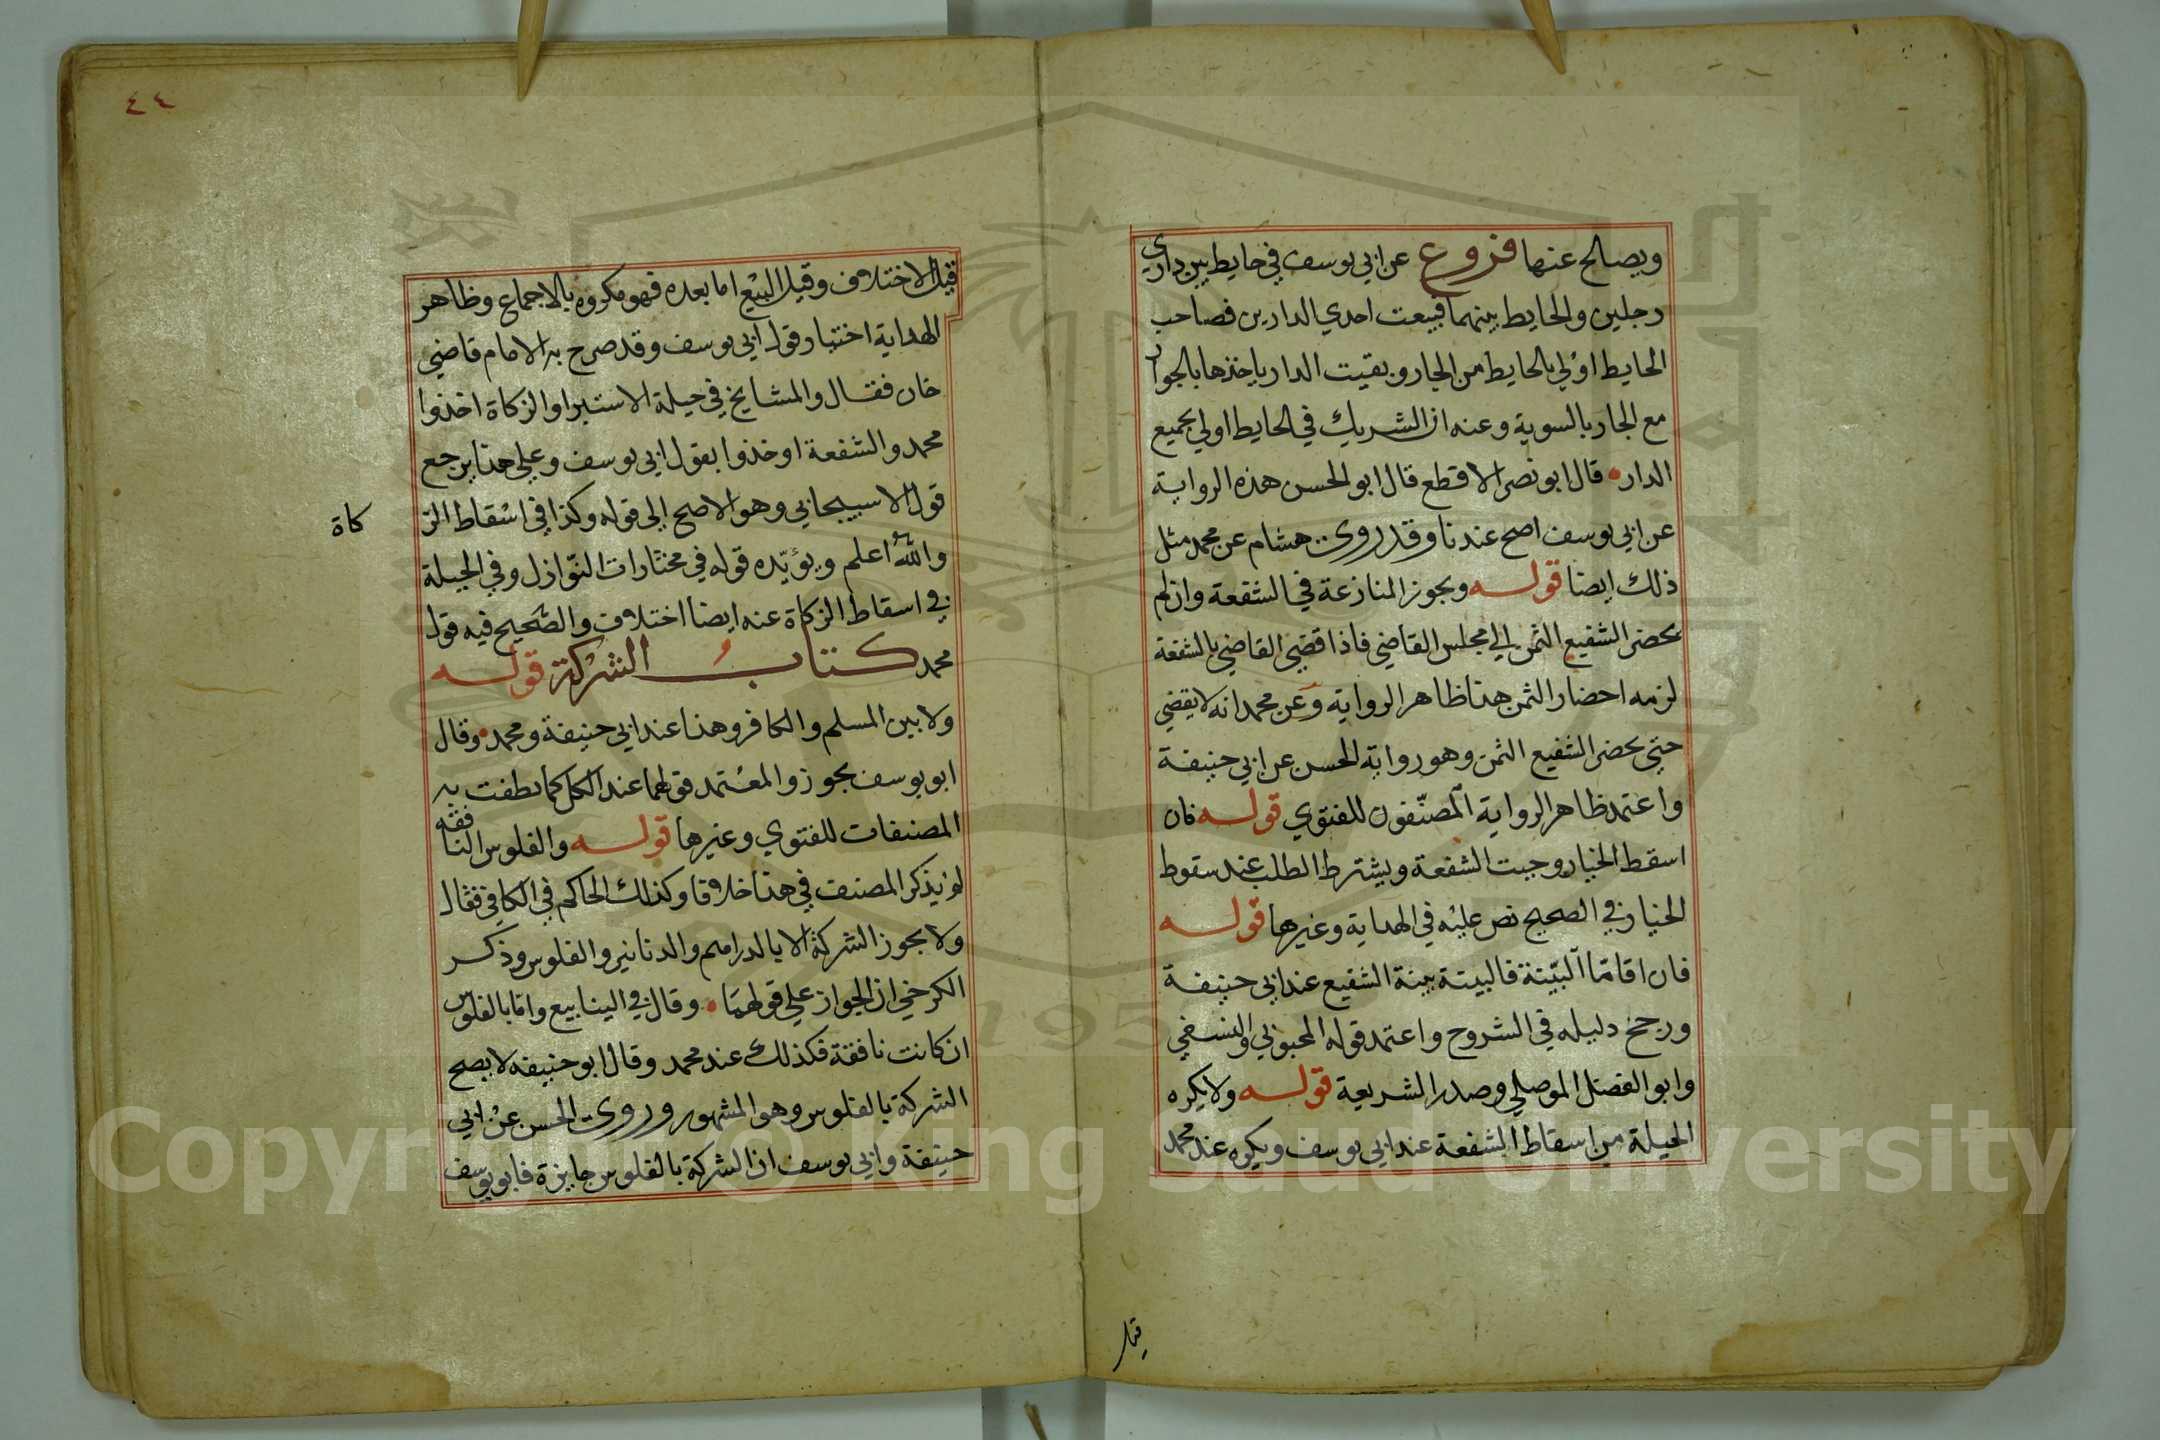 ويصالح عنها فروع عن ابي يوسف في حايط بين داري
رجلين والحايط بينهما فبيعت احدي الدارين فصاحب
الحايط اولي بالحايط من الجار وبقيت الدار ياخذها بالجوار
مع الجار بالسوية وعنه ان الشريك في الحايط اولي بجميع
الدار قال ابو نصر الاقطع قال ابو الحسن هذه الرواية
عن ابي يوسف اصح عندنا وقد روي هشام عن محمد مثل
ذلك ايضا قوله ويجوز المنازعة في الشفعة وان لم
يحضر الشفيع الثمن الي مجلس القاضي فاذا قضي القاضي بالشفعة
لزمه احضار الثمن هذا ظاهر الرواية وعن محمد انه لا يقضي
حتي يحضر الشفيع الثمن وهو رواية الحسن عن ابي حنيفة
واعتمد ظاهر الرواية المصنفون للفتوي قوله فان
اسقط الخيار وجبت الشفعة ويشترط الطلب عند سقوط
الخيار في الصحيح نص عليه في الهداية وغيرها قوله
فان اقاما البينة فالبينة بينة الشفيع عند ابي حنيفة
ورجح دليله في الشروح واعتمد قوله المحبوبي والنسفي
وابو الفضل الموصلي وصدر الشريعة قوله ولا يكره
الحيلة من اسقاط الشفعة عند ابي يوسف ويكره عند محمد
٤٤
قيل الاختلاف وقيل البيع اما بعده فهو مكروه بالاجماع وظاهر
الهداية اختيار قول ابي يوسف وقد صرح به الامام قاضي
خان فقال والمشايخ في حيلة الاستبرا والزكاة اخذوا
محمد والشفعة اوخذوا بقول ابي يوسف وعلي هذا يرجع
قول الاسبيجابي وهو الاصح الي قوله وكذا في اسقاط الز
كاة
والله اعلم ويؤيده قوله في مختارات النوازل وفي الحيلة
في اسقاط الزكاة عنه ايضا اختلاف والصحيح فيه قول
محمد كتاب الشركة قوله
ولا بين المسلم والكافر وهذا عند ابي حنيفة ومحمد وقال
ابو يوسف يجوز والمعتمد قولهما عند الكل كما نطقت به
المصنفات للفتوي وغيرها قوله والفلوس النافقه
لم يذكر المصنف في هذا خلافا وكذلك الحاكم في الكافي فقال
ولا يجوز الشركة الا بالدراهم والدنانير والفلوس وذكر
الكرخي ان الجواز علي قولهما وقال في الينابيع واما بالفلوس
ان كانت نافقة فكذلك عند محمد وقال ابو حنيفه لا يصح
الشركة بالفلوس وهو المشهور وروي الحسن عن ابي
حنيفة وابي يوسف ان الشركة بالفلوس جايزة فابو يوسف
Copyright © King Saud University